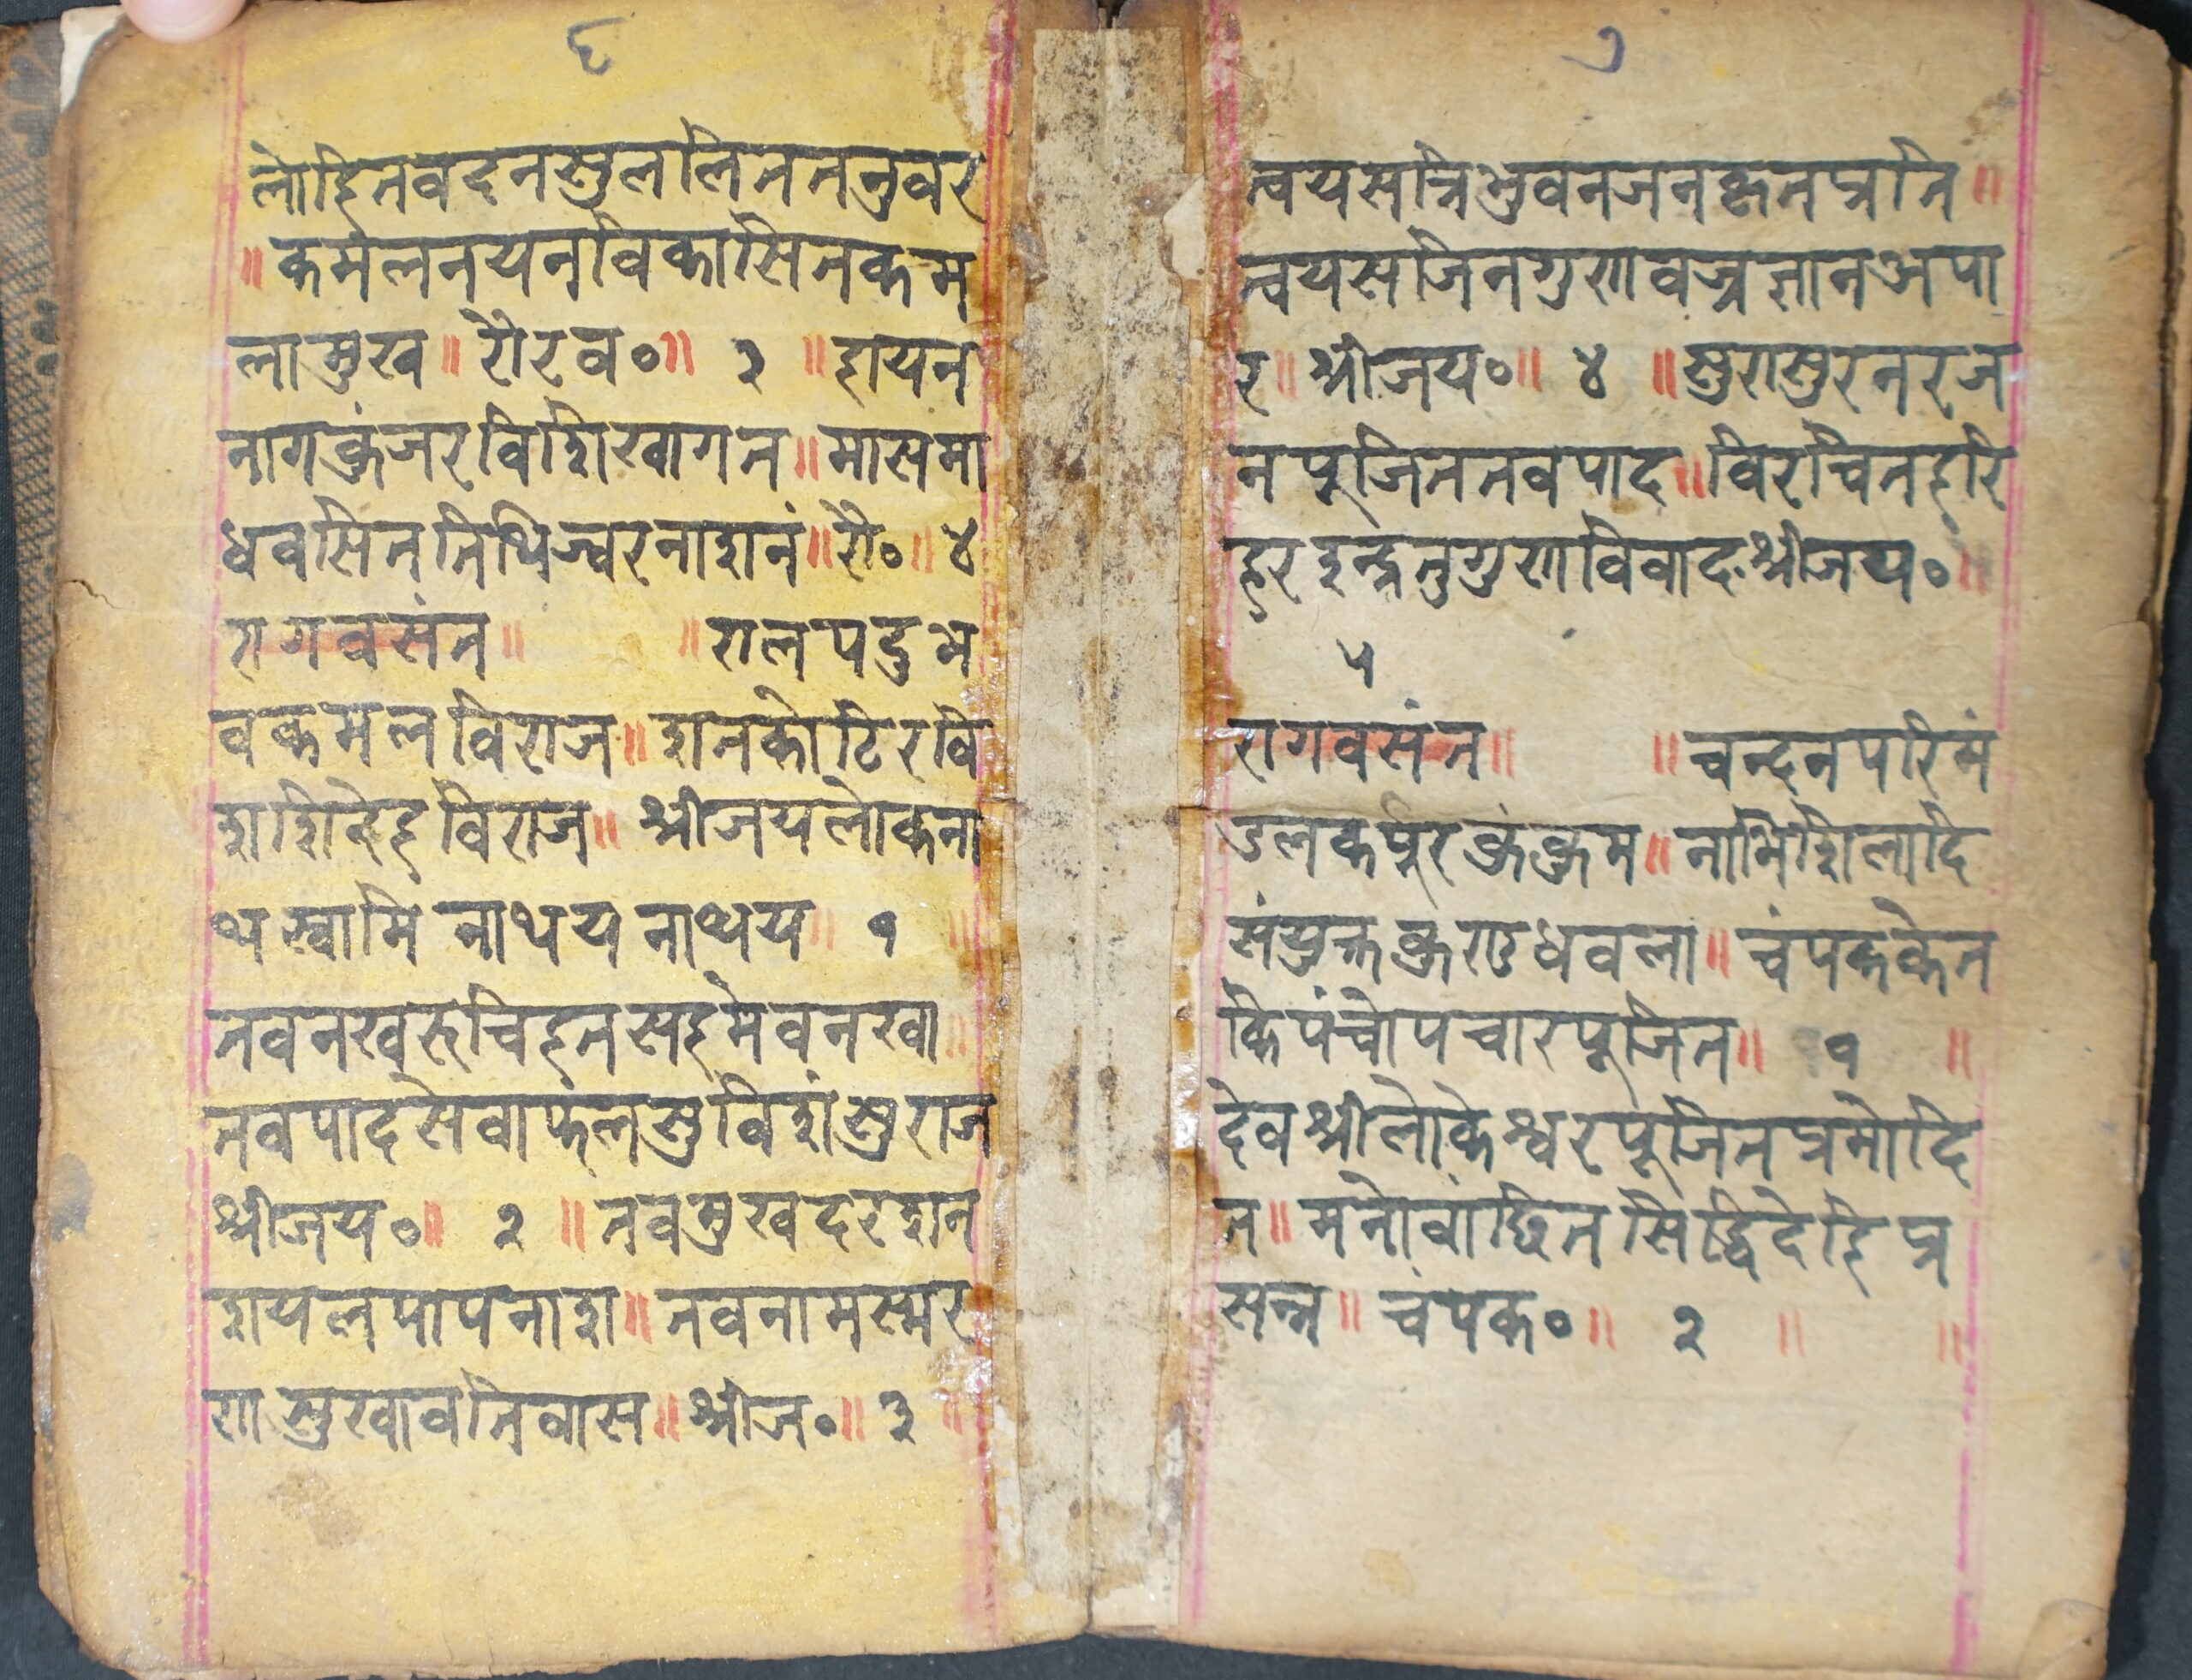 ६
लोहितवदनसुललिततनुवर
॥कमलनयनविकासितकम
लामुख॥रौरव०॥ ३ ॥हायन
नागकुंजरविशिखागत॥मासमा
धवसिततिथिज्वरनाशनं॥रौ०॥४
रागवसंत॥ ॥रालपदुभ
वकमलविराज॥शतकोटिरवि
शशिदेहविराज॥श्रीजयलोकना
थस्वामि नाथय नाथय॥ १ ॥
नवनखरुचिहनसहमेवनखा॥
तवपादसेवाफलसुविशांसुराज
श्रीजय०॥ २ ॥तवमुखदरशन
शयलपापनाश॥तवनामस्मर
णासुखावतिवास॥श्रीज०॥३॥
७
त्वयसत्रिभुवनजनकृतप्रति॥
त्वयसजिनगुणवज्रज्ञानअपा
र॥श्रीजय०॥ ४ ॥सुरासुरनरज
नपूजिततवपाद॥विरचितहरि
हरइन्द्रनुगुणविवाद॥श्रीजय०॥
५
रागवसंत॥ ॥चन्दनपरिमं
डलकर्पूरकुंकुम॥नाभिशिलादि
संयुक्तकुरण्डधवला॥चंपककेत
किपंचोपचारपूजित॥ १ ॥
देवश्रीलोकेश्वरपूजितप्रमोदि
त॥मनोवांछितसिद्धिदेहिप्र
सन्न॥चंपक०॥ २ ॥ ॥